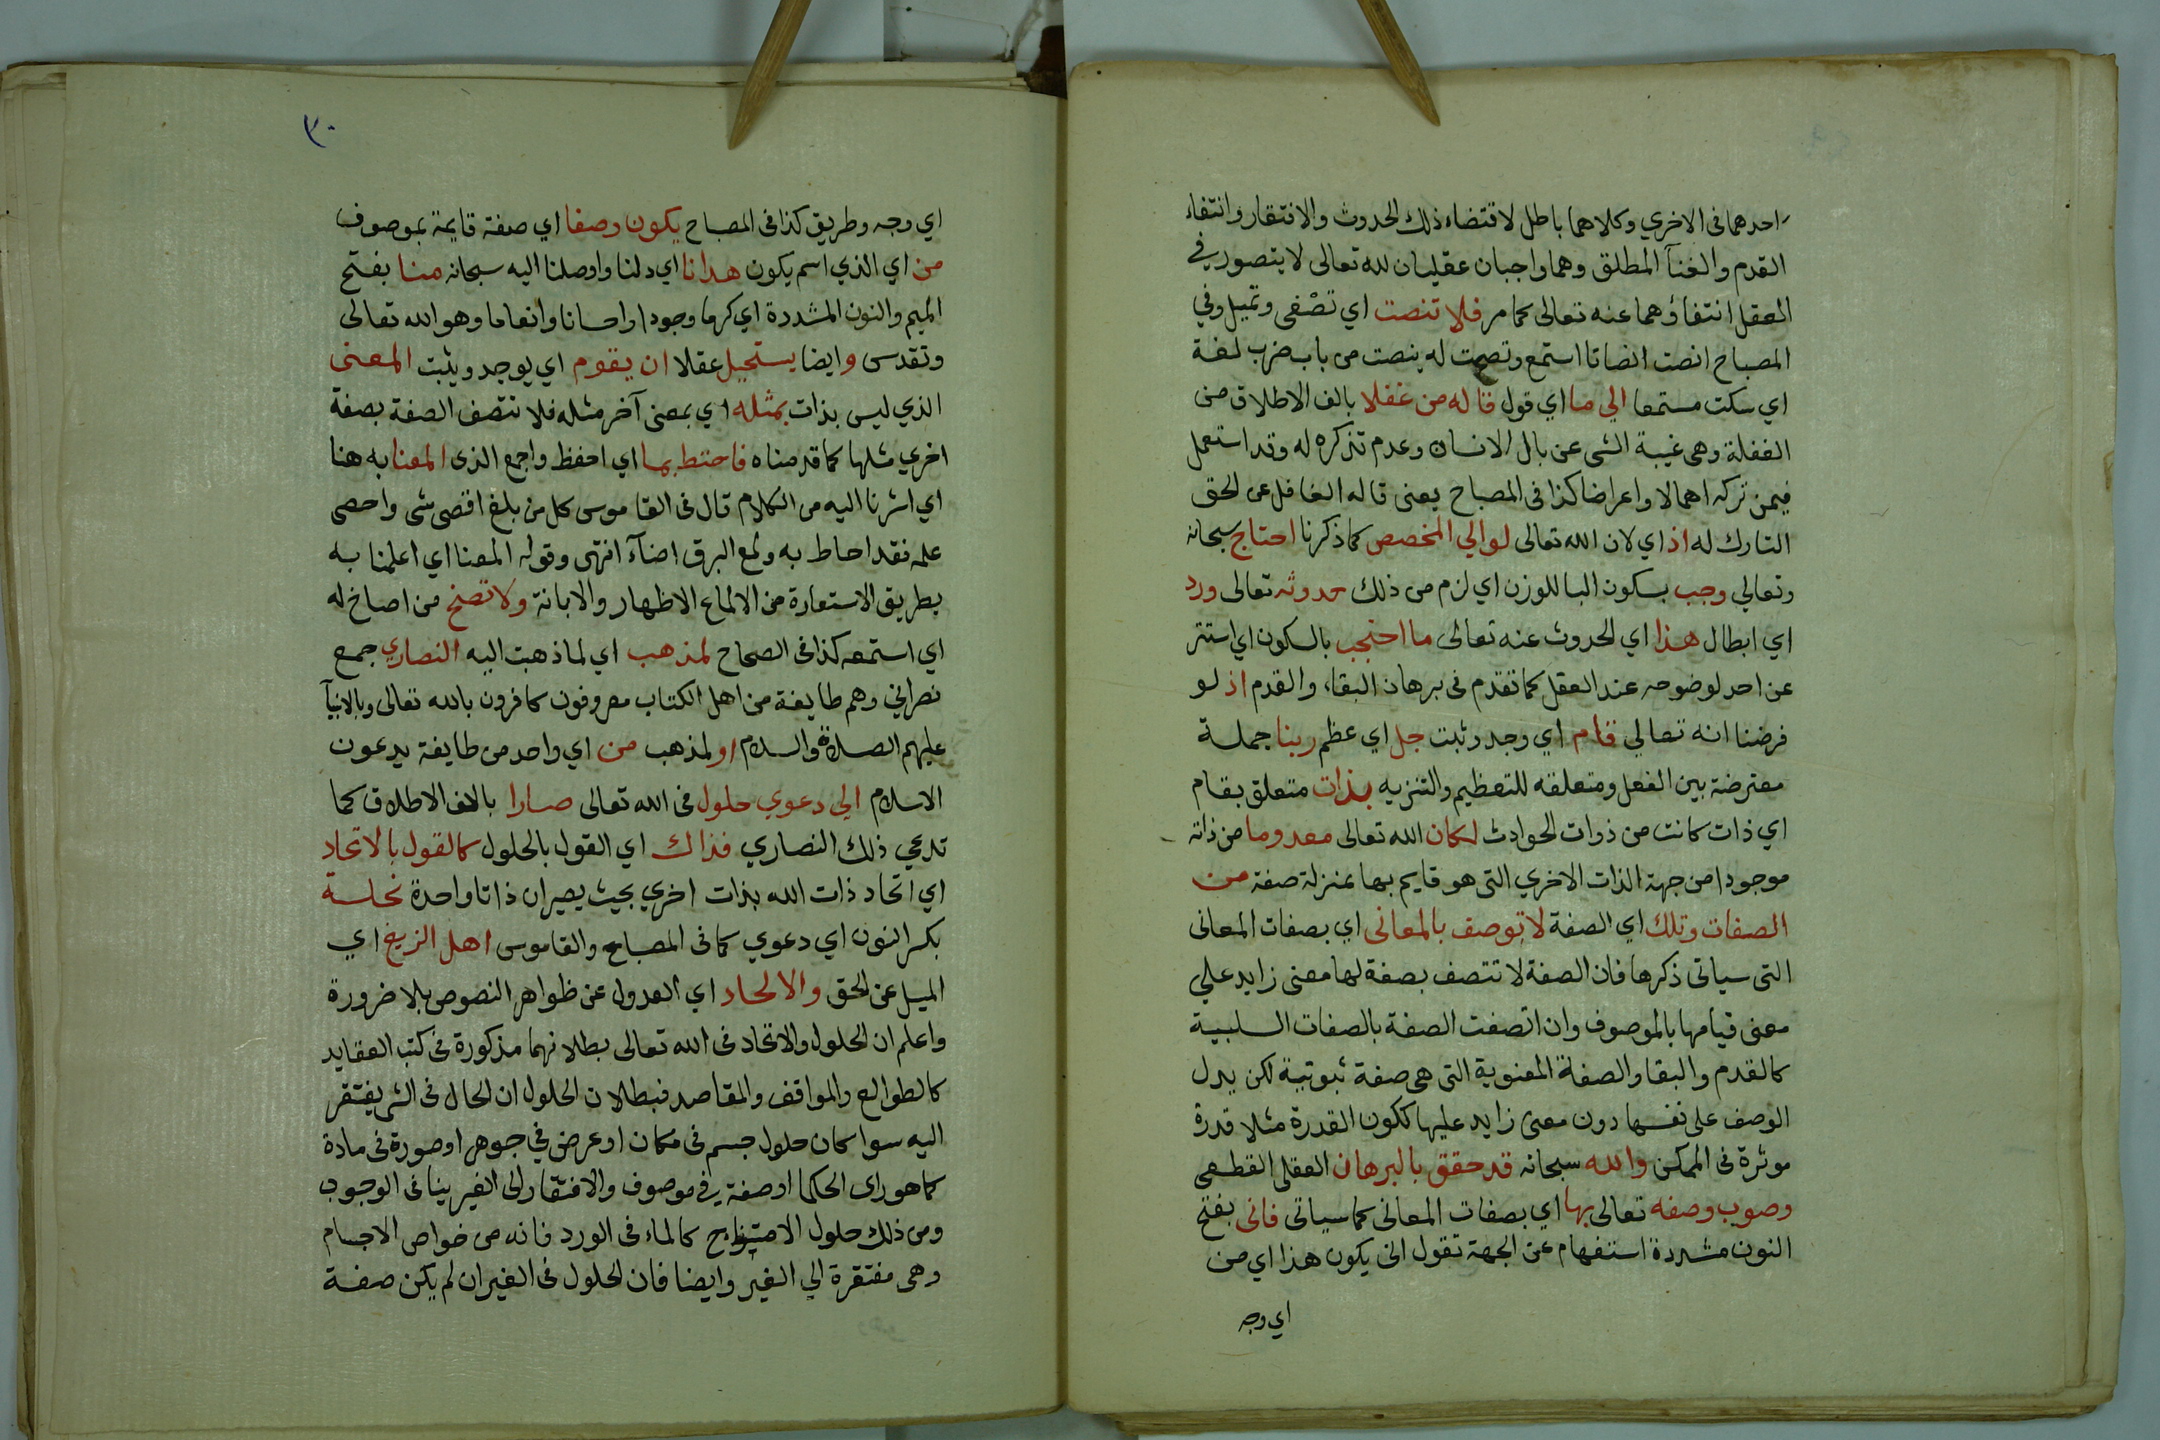 احدهما فى الاخري وكلاهما باطل لاقتضاء ذلك الحدوث والافتقار وانتفاء
القدم والغنآ المطلق وهما واجبان عقليان لله تعالى لا يتصور في
العقل انتفاؤهما عنه تعالى كما مر فلا تنصت اي تصْغى وتميل وفي
المصباح انصت انصاتا استمع ونصت له ينصت من باب ضرب لغة
اي سكت مستمعا الي ما اي قول قاله من غفلا بالف الاطلاق من
الغفلة وهى غيبة الشى عن بال الانسان وعدم تذكره له وقد استعمل
فيمن تركه اهمالا واعراضا كذا فى المصباح يعنى قاله الغافل عن الحق
التارك له اذ اي لان الله تعالى لو الي المخصص كما ذكرنا احتاج سبحانه
وتعالي وجب بسكون البا للوزن اي لزم من ذلك حدوثه تعالى ورد
اي ابطال هذا اي الحدوث عنه تعالى ما احتجب بالسكون اي استتر
عن احد لوضوحه عند العقل كما تقدم فى برهان البقاء والقدم اذ لو
فرضنا انه تعالي قام اي وجد وثبت جل اي عظم ربنا جملة
معترضة بين الفعل ومتعلقه للتعظيم والتنزيه بذات متعلق بقام
اي ذات كانت من ذوات الحوادث لكان الله تعالى معدوما من ذاته
موجودا من جهة الذات الاخري التى هو قايم بها بمنزلة صفة من
الصفات وتلك اي الصفة لا توصف بالمعانى اي بصفات المعانى
التى سياتى ذكرها فان الصفة لا تتصف بصفة لها معنى زايد علي
معنى قيامها بالموصوف وان اتصفت الصفة بالصفات السلبية
كالقدم والبقا والصفاة المعنوية التى هى صفة ثبوتية لكن يدل
الوصف على نفسها دون معنى زايد عليها ككون القدرة مثلا قدرة
موثرة فى الممكن والله سبحانه قد حقق بالبرهان العقلى القطعى
وصوب وصفه تعالى بها اي بصفات المعانى كما سياتى فانى بفتح
النون مشددة استفهام عن الجهة تقول انى يكون هذا اي من
اي وجه
٣٠
اي وجه وطريق كذا فى المصباح يكون وصفا اي صفة قايمة بموصوف
من اي الذي اسم يكون هدانا اي دلنا واوصلنا اليه سبحانه منا بفتح
الميم والنون المشددة اي كرما وجودا واحسانا وانعاما وهو الله تعالى
وتقدس وايضا يستحيل عقلا ان يقوم اي يوجد ويثبت المعنى
الذي ليس بذات بمثله اي بمعنى آخر مثله فلا تتصف الصفة بصفة
اخري مثلها كما قدمناه فاحتط بما اي احفظ واجمع الذى المعنا به هنا
اي اشرنا اليه من الكلام قال فى القاموس كل من بلغ اقصى شى واحصى
علمه فقد احاط به ولمع البرق اضآء انتهى وقوله المعنا اي اعلمنا به
بطريق الاستعارة من الالماع الاظهار والابانة ولا تصخ من اصاخ له
اي استمعه كذا فى الصحاح لمذهب اي لما ذهبت اليه النصاري جمع
نصرانى وهم طايفة من اهل الكتاب معروفون كافرون بالله تعالى وبالانبيآ
عليهم الصلاة والسلام او لمذهب من اي واحد من طايفة يدعون
الاسلام الي دعوي حلول فى الله تعالى صارا بالف الاطلاق كما
تدعي ذلك النصاري فذاك اي القول بالحلول كالقول بالاتحاد
اي اتحاد ذات الله بذات اخري بحيث يصيران ذاتا واحدة نحلة
بكسر النون اي دعوي كما فى المصباح والقاموس اهل الزيغ اي
الميل عن الحق والالحاد اي العدول عن ظواهر النصوص بلا ضرورة
واعلم ان الحلول والاتحاد فى الله تعالى بطلانهما مذكورة فى كتب العقايد
كالطوالع والمواقف والمقاصد فبطلان الحلول ان الحال فى الشى يفتقر
اليه سوا كان حلول جسم فى مكان او عرض في جوهر او صورة فى مادة
كما هو راى الحكما او صفة في موصوف والافتقار الى الغير ينافى الوجوب
ومن ذلك حلول الامتزاج كالماء فى الورد فانه من خواص الاجسام
وهى مفتقرة الي الغير وايضا فان الحلول فى الغير ان لم يكن صفة